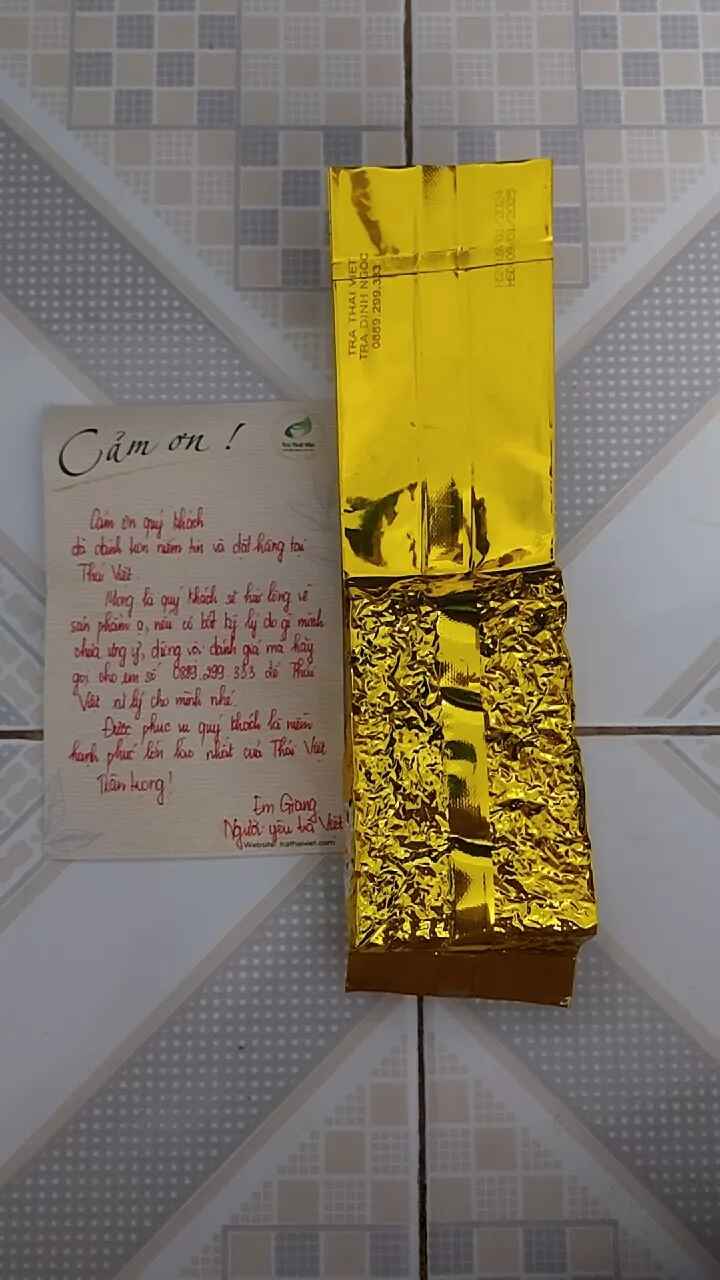 Cảm ơn !
Trà Thái Việt
Cảm ơn quý khách
đã dành trọn niềm tin và đặt hàng tại
Thái Việt
Mong là quý khách sẽ hài lòng về
sản phẩm ạ, nếu có bất kỳ lý do gì mình
chưa ưng ý, đừng vội đánh giá mà hãy
gọi cho em số 0889.299.333 để Thái
Việt xử lý cho mình nhé.
Được phục vụ quý khách là niềm
hạnh phúc lớn lao nhất của Thái Việt
Trân trọng!
Em Giang
Người yêu trà Việt
Website: trathaiviet.com
TRA THAI VIET
TRA DINH NGOC
0889.299.333
NSX 09/01/2024
HSD 09/01/2025